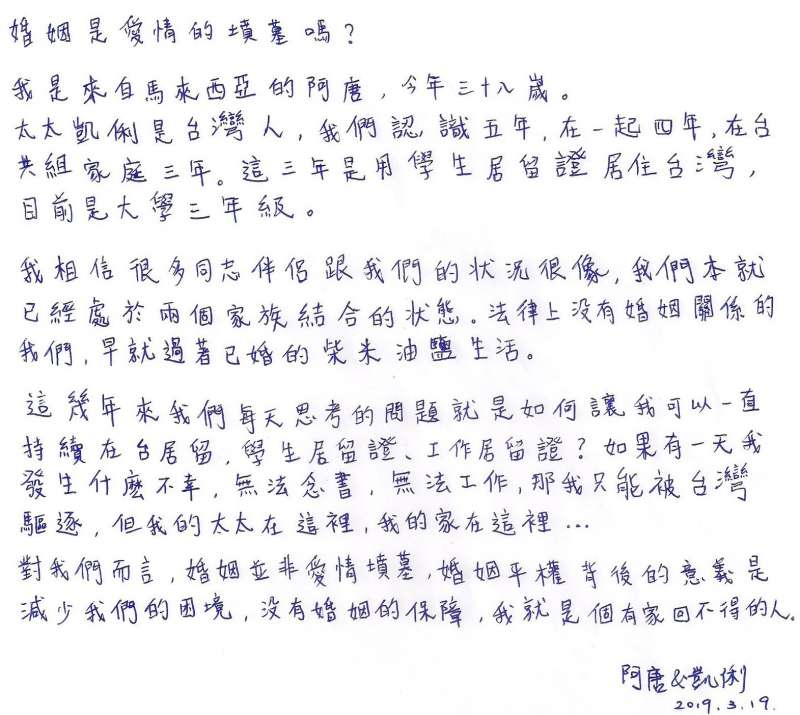 婚姻是愛情的墳墓嗎？
我是來自馬來西亞的阿唐，今年三十八歲。
太太凱俐是台灣人，我們認識五年，在一起四年，在台
共組家庭三年。這三年是用學生居留證居住台灣，
目前是大學三年級。
我相信很多同志伴侶跟我們的狀況很像，我們本就
已經處於兩個家族結合的狀態。法律上沒有婚姻關係的
我們，早就過著已婚的柴米油鹽生活。
這幾年來我們每天思考的問題就是如何讓我可以一直
持續在台居留，學生居留證、工作居留證？如果有一天我
發生什麼不幸，無法念書，無法工作，那我只能被台灣
驅逐，但我的太太在這裡，我的家在這裡…
對我們而言，婚姻並非愛情墳墓，婚姻平權背後的意義是
減少我們的困境，沒有婚姻的保障，我就是個有家回不得的人。
阿唐&凱俐
2019.3.19.